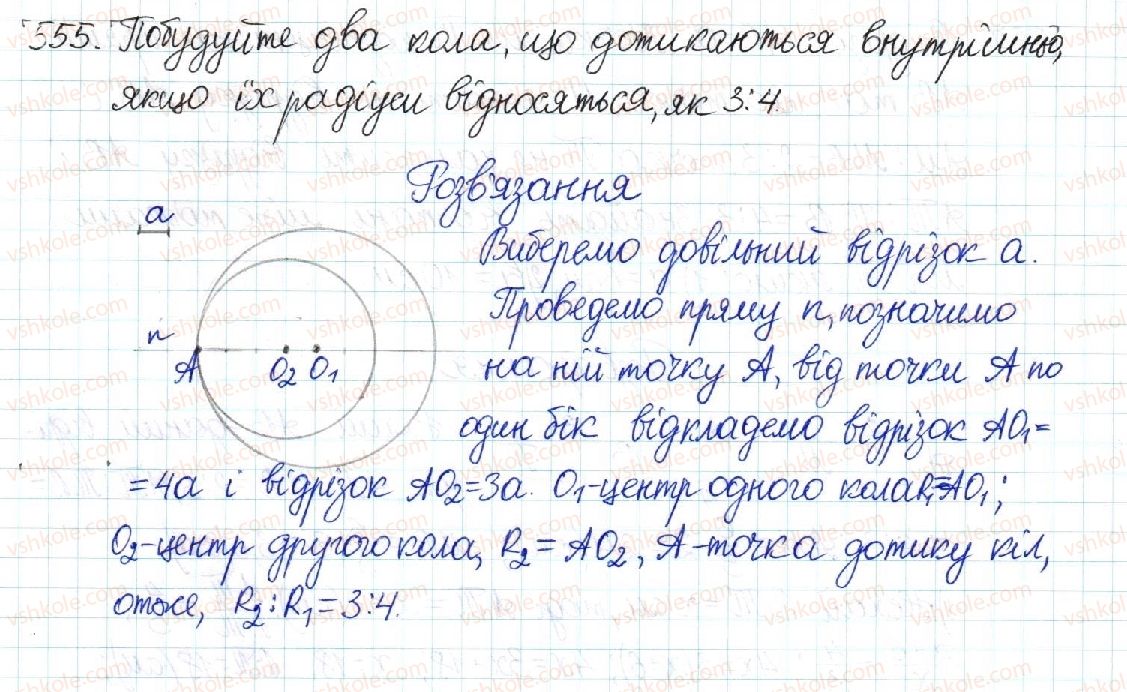 555. Побудуйте два кола, що дотикаються внутрішньо,
якщо їх радіуси відносяться, як 3:4.
Розв'язання
a
Виберемо довільний відрізок a.
Проведемо пряму n, позначимо
n
A O₂ O₁
на ній точку A, від точки A по
один бік відкладемо відрізок AO₁=
=4a і відрізок AO₂=3a. O₁-центр одного кола R₁=AO₁;
O₂-центр другого кола, R₂=AO₂, A-точка дотику кіл,
отже, R₂:R₁=3:4.
vshkole.com